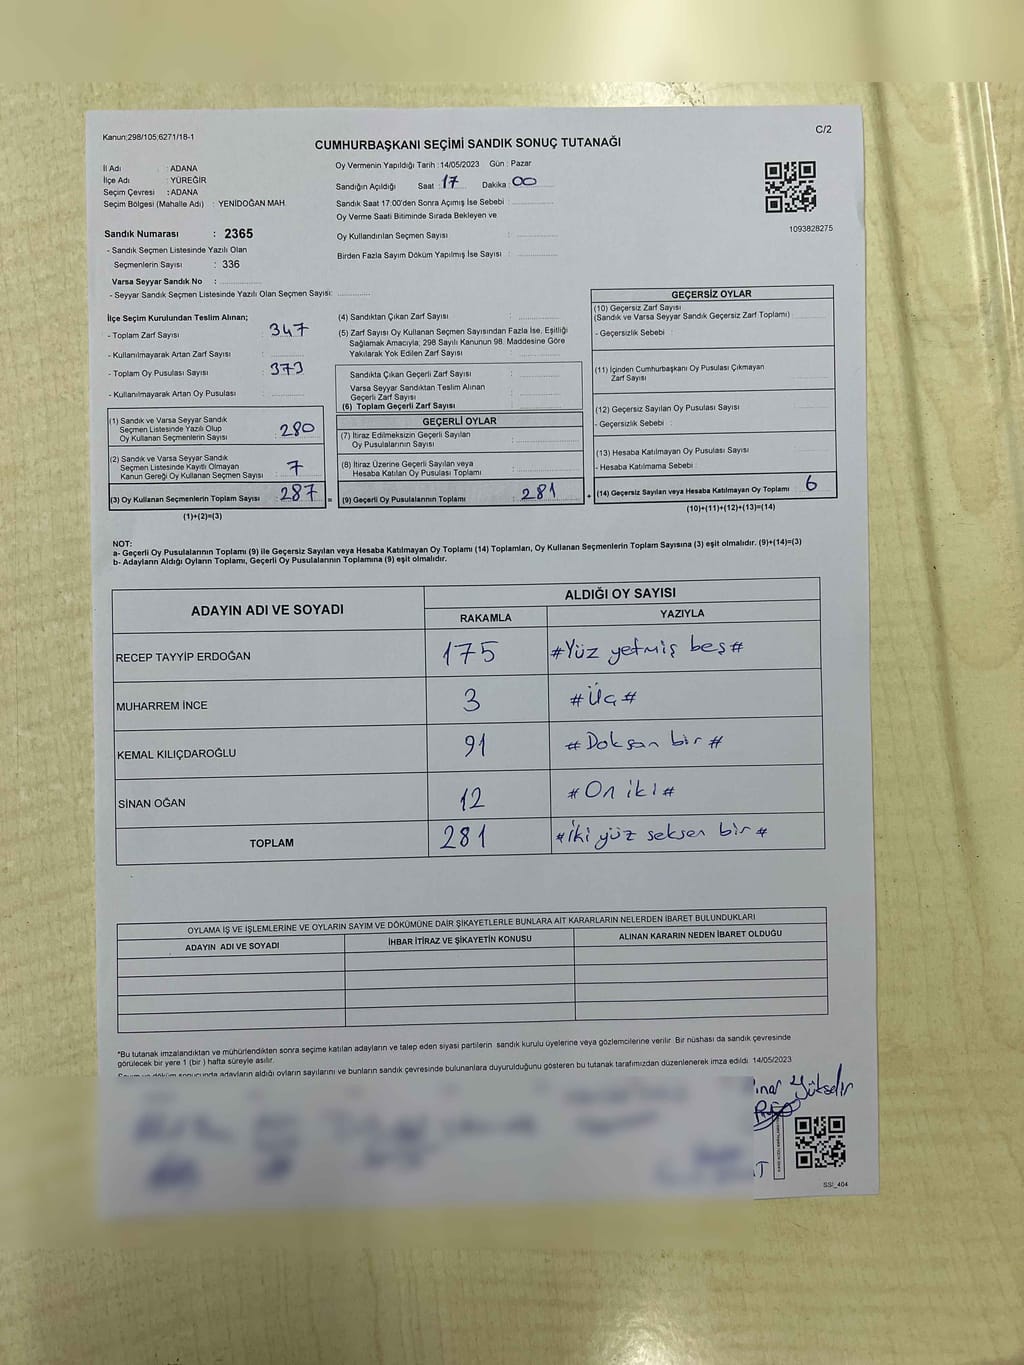 Kanun;298/105;6271/18-1
C/2
CUMHURBAŞKANI SEÇİMİ SANDIK SONUÇ TUTANAĞI
İl Adı : ADANA
İlçe Adı : YÜREĞİR
Seçim Çevresi : ADANA
Seçim Bölgesi (Mahalle Adı) : YENİDOĞAN MAH
Oy Vermenin Yapıldığı Tarih :14/05/2023 Gün : Pazar
Sandığın Açıldığı Saat : 17 Dakika : 00
Sandık Saat 17:00'den Sonra Açımış İse Sebebi :
Oy Verme Saati Bitiminde Sırada Bekleyen ve
Oy Kullandırılan Seçmen Sayısı :
Birden Fazla Sayım Döküm Yapılmış İse Sayısı :
1093828275
Sandık Numarası : 2365
- Sandık Seçmen Listesinde Yazılı Olan
Seçmenlerin Sayısı : 336
Varsa Seyyar Sandık No :
- Seyyar Sandık Seçmen Listesinde Yazılı Olan Seçmen Sayısı:
İlçe Seçim Kurulundan Teslim Alınan;
- Toplam Zarf Sayısı : 347
- Kullanılmayarak Artan Zarf Sayısı :
- Toplam Oy Pusulası Sayısı : 373
- Kullanılmayarak Artan Oy Pusulası :
(1) Sandık ve Varsa Seyyar Sandık
Seçmen Listesinde Yazılı Olup
Oy Kullanan Seçmenlerin Sayısı : 280
(2) Sandık ve Varsa Seyyar Sandık
Seçmen Listesinde Kayıtlı Olmayan
Kanun Gereği Oy Kullanan Seçmen Sayısı : 7
(3) Oy Kullanan Seçmenlerin Toplam Sayısı : 287 =
(1)+(2)=(3)
(4) Sandıktan Çıkan Zarf Sayısı :
(5) Zarf Sayısı Oy Kullanan Seçmen Sayısından Fazla İse, Eşitliği
Sağlamak Amacıyla; 298 Sayılı Kanunun 98. Maddesine Göre
Yakılarak Yok Edilen Zarf Sayısı :
Sandıkta Çıkan Geçerli Zarf Sayısı :
Varsa Seyyar Sandıktan Teslim Alınan
Geçerli Zarf Sayısı :
(6) Toplam Geçerli Zarf Sayısı :
GEÇERLİ OYLAR
(7) İtiraz Edilmeksizin Geçerli Sayılan
Oy Pusulalarının Sayısı :
(8) İtiraz Üzerine Geçerli Sayılan veya
Hesaba Katılan Oy Pusulası Toplamı :
(9) Geçerli Oy Pusulalarının Toplamı : 281 +
GEÇERSİZ OYLAR
(10) Geçersiz Zarf Sayısı
(Sandık ve Varsa Seyyar Sandık Geçersiz Zarf Toplamı) :
- Geçersizlik Sebebi :
(11) İçinden Cumhurbaşkanı Oy Pusulası Çıkmayan
Zarf Sayısı :
(12) Geçersiz Sayılan Oy Pusulası Sayısı :
- Geçersizlik Sebebi :
(13) Hesaba Katılmayan Oy Pusulası Sayısı :
- Hesaba Katılmama Sebebi :
(14) Geçersiz Sayılan veya Hesaba Katılmayan Oy Toplamı : 6
(10)+(11)+(12)+(13)=(14)
NOT:
a- Geçerli Oy Pusulalarının Toplamı (9) ile Geçersiz Sayılan veya Hesaba Katılmayan Oy Toplamı (14) Toplamları, Oy Kullanan Seçmenlerin Toplam Sayısına (3) eşit olmalıdır. (9)+(14)=(3)
b- Adayların Aldığı Oyların Toplamı, Geçerli Oy Pusulalarının Toplamına (9) eşit olmalıdır.
ADAYIN ADI VE SOYADI
ALDIĞI OY SAYISI
RAKAMLA YAZIYLA
RECEP TAYYİP ERDOĞAN 175 #Yüz yetmiş beş#
MUHARREM İNCE 3 #Üç#
KEMAL KILIÇDAROĞLU 91 #Doksan bir#
SİNAN OĞAN 12 #On iki#
TOPLAM 281 #iki yüz seksen bir#
OYLAMA İŞ VE İŞLEMLERİNE VE OYLARIN SAYIM VE DÖKÜMÜNE DAİR ŞİKAYETLERLE BUNLARA AİT KARARLARIN NELERDEN İBARET BULUNDUKLARI
ADAYIN ADI VE SOYADI İHBAR İTİRAZ VE ŞİKAYETİN KONUSU ALINAN KARARIN NEDEN İBARET OLDUĞU
*Bu tutanak imzalandıktan ve mühürlendikten sonra seçime katılan adayların ve talep eden siyasi partilerin sandık kurulu üyelerine veya gözlemcilerine verilir. Bir nüshası da sandık çevresinde
görülecek bir yere 1 (bir ) hafta süreyle asılır.
Sayım ve döküm sonucunda adayların aldığı oyların sayılarını ve bunların sandık çevresinde bulunanlara duyurulduğunu gösteren bu tutanak tarafımızdan düzenlenerek imza edildi. 14/05/2023
SSI_404